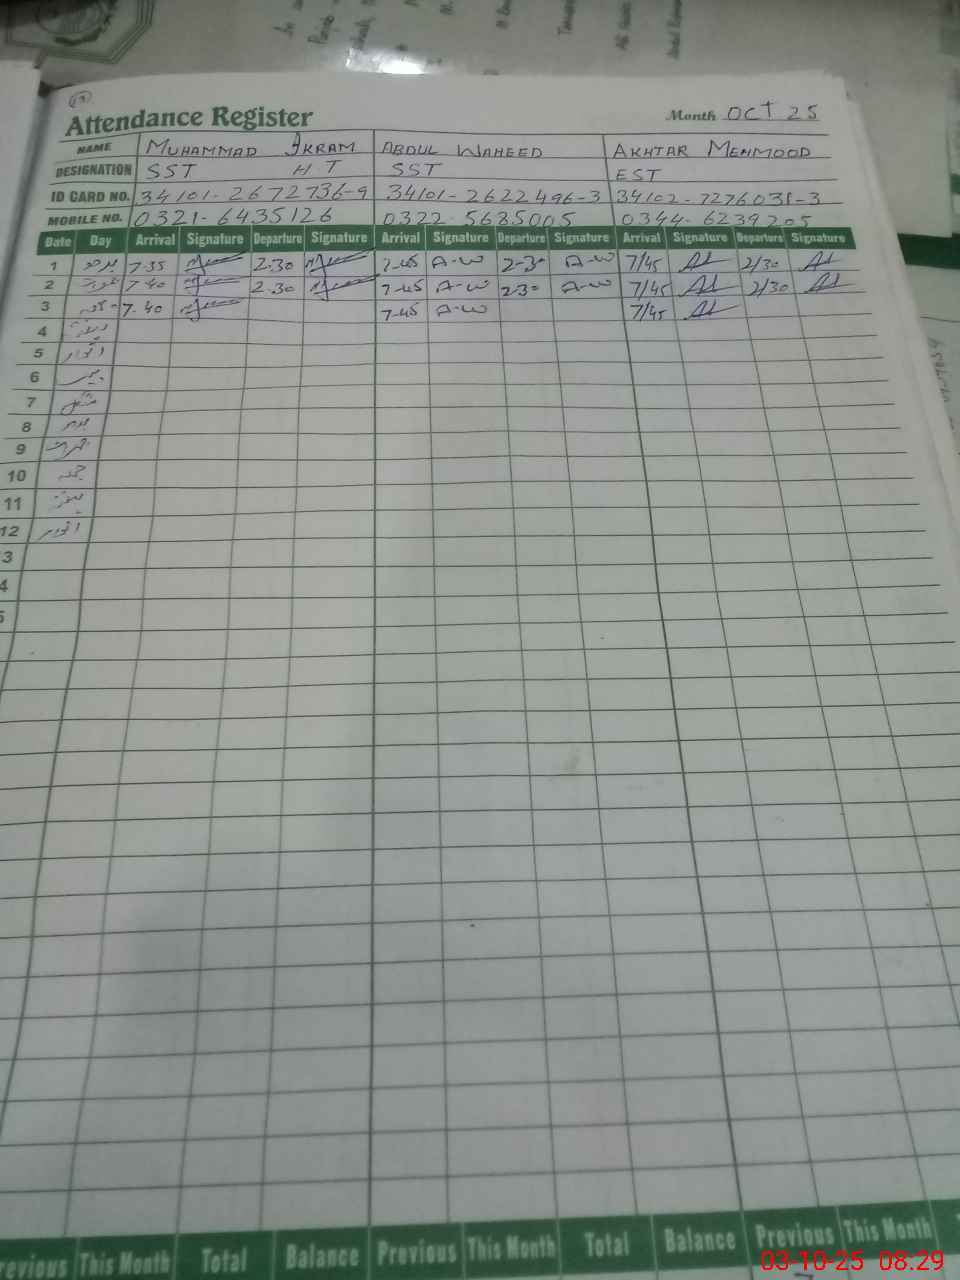 Attendance Register Month OCT 25
NAME MUHAMMAD IKRAM ABDUL WAHEED AKHTAR MEHMOOD
DESIGNATION SST H T SST EST
ID CARD NO. 34101-2672736-9 34101-2622496-3 34102-7276031-3
MOBILE NO. 0321-6435126 0322-5685005 0344-6239205
Date Day Arrival Signature Departure Signature Arrival Signature Departure Signature Arrival Signature Departure Signature
1 بدھ 7-35 2-30 7-45 A-W 2-30 A-W 7/45 2/30
2 7-40 2-30 7-45 A-W 2-30 A-W 7/45 2/30
3 7-40 7-45 A-W 7/45
4
5 اتوار
6 پیر
7 منگل
8 بدھ
9 جمعرات
10 جمعہ
11 ہفتہ
12 اتوار
3
4
5
revious This Month Total Balance Previous This Month Total Balance Previous This Month
03-10-25 08:29